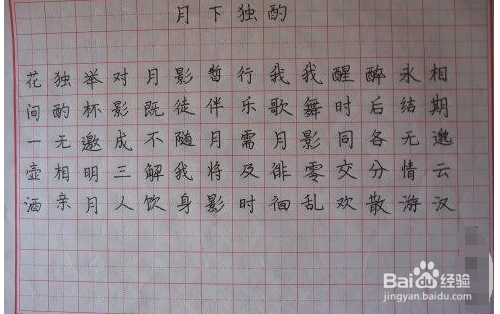 月下独酌
花间一壶酒
独酌无相亲
举杯邀明月
对影成三人
月既不解饮
影徒随我身
暂伴月将影
行乐需及时
我歌月徘徊
我舞影零乱
醒时同交欢
醉后各分散
永结无情游
相期邈云汉
Baidu经验
jingyan.baidu.com